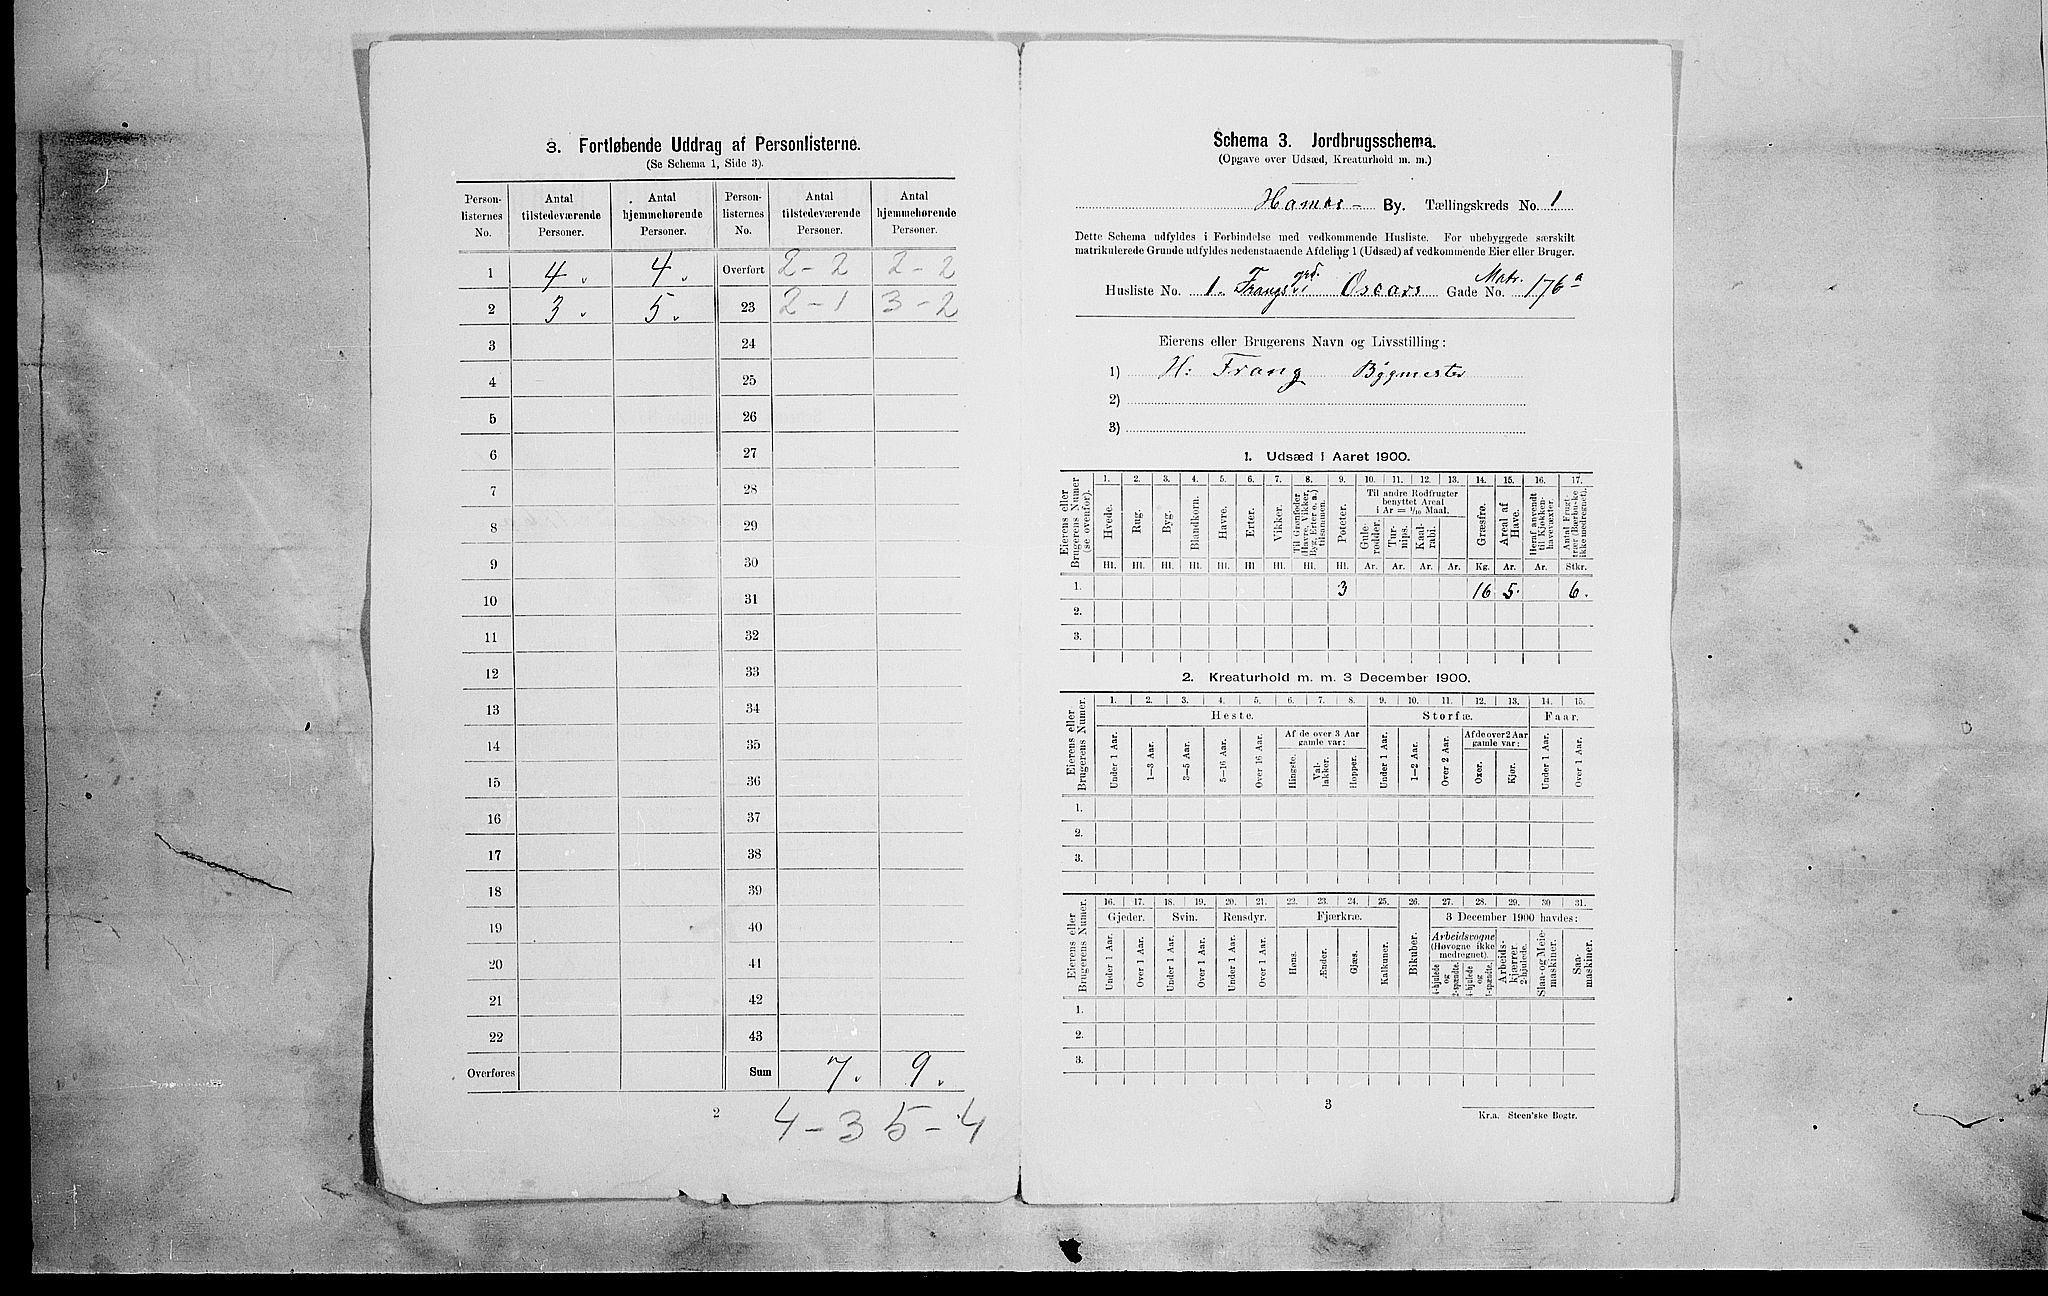 3. Fortløbende Uddrag af Personlisterne.
(Se Schema 1, Side 3).
Person-listernes No. | Antal tilstedeværende Personer. | Antal hjemmehørende Personer. | Person-listernes No. | Antal tilstedeværende Personer. | Antal hjemmehørende Personer.
1 | 4. | 4. | Overført | 2-2 | 2-2
2 | 3. | 5. | 23 | 2-1 | 3-2
3 | 24
4 | 25
5 | 26
6 | 27
7 | 28
8 | 29
9 | 30
10 | 31
11 | 32
12 | 33
13 | 34
14 | 35
15 | 36
16 | 37
17 | 38
18 | 39
19 | 40
20 | 41
21 | 42
22 | 43
Overføres | Sum | 7. | 9.
2
4-3 5-4
Schema 3. Jordbrugsschema.
(Opgave over Udsæd, Kreaturhold m. m.)
Hamar By. Tællingskreds No. 1
Dette Schema udfyldes i Forbindelse med vedkommende Husliste. For ubebyggede særskilt
matrikulerede Grunde udfyldes nedenstaaende Afdeling 1 (Udsæd) af vedkommende Eier eller Bruger.
Husliste No. 1. Frangsgrd. Oscars Gade No. Matr. 176a
Eierens eller Brugerens Navn og Livsstilling:
1) H. Frang Bygmester
2)
3)
1. Udsæd i Aaret 1900.
Eierens eller Brugerens Numer (se ovenfor).
1. 2. 3. 4. 5. 6. 7. 8. 9. 10. 11. 12. 13. 14. 15. 16. 17.
Hvede. Rug. Byg. Blandkorn. Havre. Erter. Vikker. Til Grønfoder (Havre, Vikker, Byg, Erter o. a.) tilsammen. Poteter.
Til andre Rodfrugter benyttet Areal i Ar = 1/10 Maal.
Gule-rødder. Tur-nips. Kaal-rabi. Græsfrø. Areal af Have. Heraf anvendt til Kjøkken-havevæxter. Antal Frugt-trær (Bærbuske ikke medregnet).
Hl. Hl. Hl. Hl. Hl. Hl. Hl. Hl. Hl. Ar. Ar. Ar. Ar. Kg. Ar. Ar. Stkr.
1. 3 16 5. 6.
2.
3.
2. Kreaturhold m. m. 3 December 1900.
Eierens eller Brugerens Numer.
1. 2. 3. 4. 5. 6. 7. 8. 9. 10. 11. 12. 13. 14. 15.
Heste. Storfæ. Faar.
Af de over 3 Aar gamle var: Af de over 2 Aar gamle var:
Under 1 Aar. 1—3 Aar. 3—5 Aar. 5—16 Aar. Over 16 Aar. Hingste. Val-lakker. Hopper. Under 1 Aar. 1—2 Aar. Over 2 Aar. Oxer. Kjør. Under 1 Aar. Over 1 Aar.
1.
2.
3.
Eierens eller Brugerens Numer.
16. 17. 18. 19. 20. 21. 22. 23. 24. 25. 26. 27. 28. 29. 30 31.
Gjeder. Svin. Rensdyr. Fjærkræ. Bikuber. 3 December 1900 havdes:
Arbeidsvogne (Høvogne ikke medregnet).
Under 1 Aar. Over 1 Aar. Under 1 Aar. Over 1 Aar. Under 1 Aar. Over 1 Aar. Høns. Ænder. Gjæs. Kalkuner. 4-hjulede og 2-spændte. 4-hjulede og 1-spændte. Arbeids-kjærrer 2-hjulede. Slaa- og Meie-maskiner. Saa-maskiner.
1.
2.
3.
3
Kr.a. Steen'ske Bogtr.